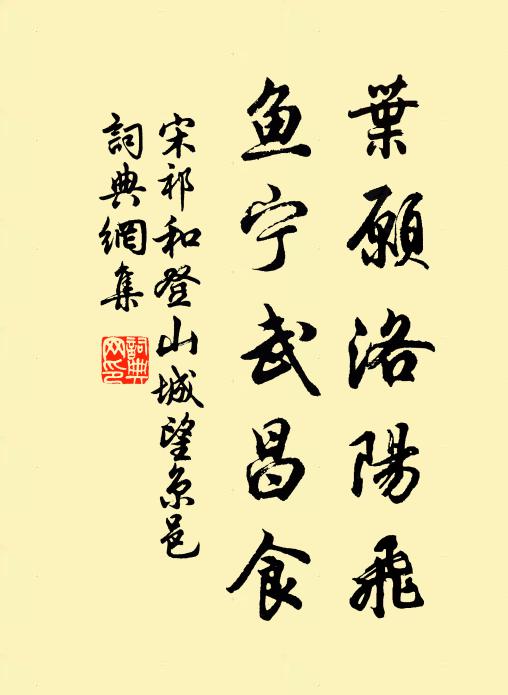 葉願洛陽飛
鱼宁武昌食
宋祁和登山城望京邑
詞典網集
詞典網印